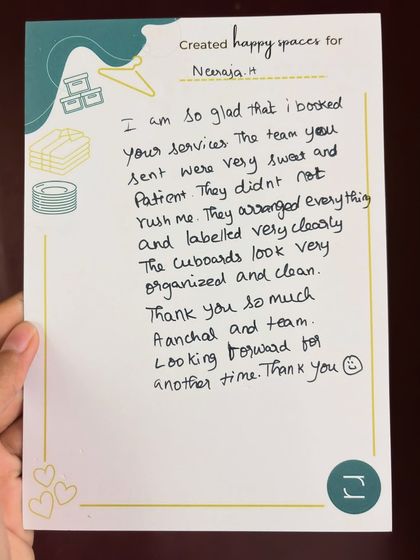 Created happy spaces for
Neeraja.H
I am so glad that i booked
your services. The team you
sent were very sweet and
Patient. They didnt not
rush me. They arranged everything
and labelled very clearly
The cuboards look very
organized and clean.
Thank you so much
Aanchal and team.
Looking forward for
another time. Thank you